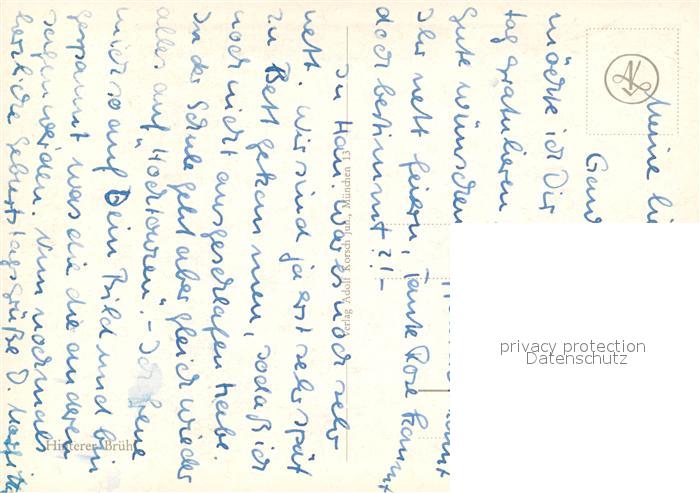 Meine
Ganz
möchte ich Dir
tag gratulieren
Gute wünschen
Ihr nett feiern, Tante Rose kommt
doch bestimmt?!-
In Han. war es noch sehr
nett. Wir sind ja erst sehr spät
zu Bett gekommen, sodaß ich
noch nicht ausgeschlafen habe.
In der Schule geht aber gleich wieder
alles auf "Hochtouren".- Ich freue
mich so auf Dein Bild und bin
gespannt was die die anderen
sagen werden. Nun nochmals
herzliche Geburtstagsgrüße D.
Verlag Adolf Korsch jun., München 13
Hinterer Brühl
privacy protection
Datenschutz